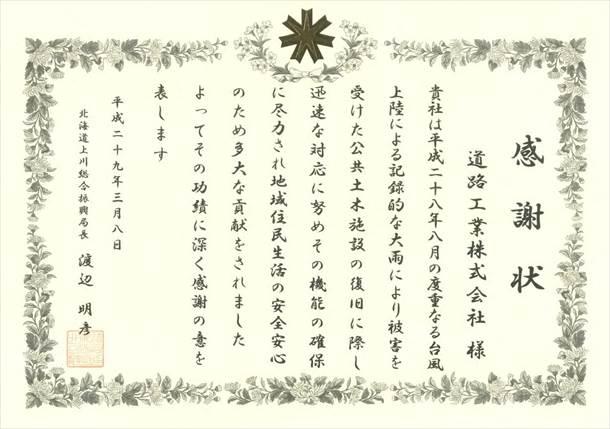 感謝状
道路工業株式会社 様
貴社は平成二十八年八月の度重なる台風
上陸による記録的な大雨により被害を
受けた公共土木施設の復旧に際し
迅速な対応に努めその機能の確保
に尽力され地域住民生活の安全安心
のため多大な貢献をされました
よってその功績に深く感謝の意を
表します
平成二十九年三月八日
北海道上川総合振興局長 渡辺 明彦